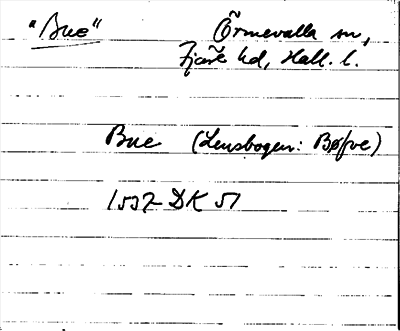 "Bue" Örmevalla sn,
Fjäre hd, Hall. l.
Bue (Lensbogen: Bøfve)
1592 DK 51